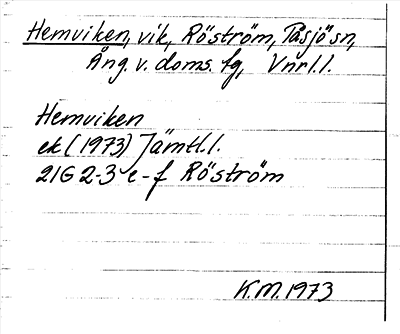 Hemviken, vik, Röström, Tåsjö sn,
Ång. v. doms. fg, Vnrl.l.
Hemviken
ek (1973) Jämtl.l.
21G 2-3 e-f Röström
K.M. 1973